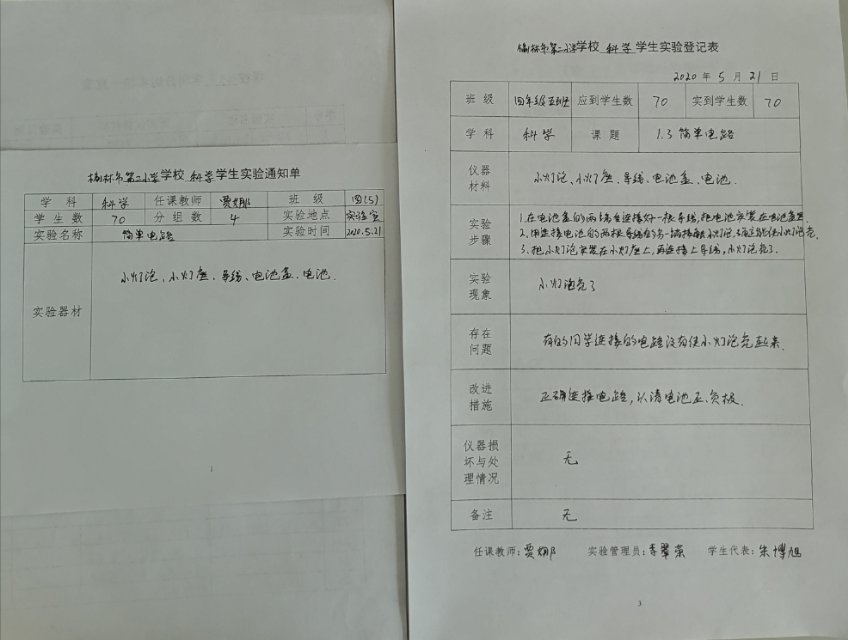 榆林市第二小学学校 科学 学生实验通知单
学科 科学 任课教师 贾娜 班级 四(5)
学生数 70 分组数 4 实验地点 实验室
实验名称 简单电路 实验时间 2020.5.21
实验器材 小灯泡、小灯座、导线、电池盒、电池.
1
榆林市第二小学学校 科学 学生实验登记表
2020 年 5 月 21 日
班级 四年级五班 应到学生数 70 实到学生数 70
学科 科学 课题 1.3 简单电路
仪器材料 小灯泡、小灯座、导线、电池盒、电池.
实验步骤 1.在电池盒的两端各连接好一根导线,把电池安装在电池盒里.
2.用连接电池的两根导线的另一端接触小灯泡,确定能使小灯泡亮.
3.把小灯泡安装在小灯座上,再连接上导线,小灯泡亮了.
实验现象 小灯泡亮了
存在问题 有的同学连接的电路没有使小灯泡亮起来.
改进措施 正确连接电路,认清电池正、负极.
仪器损坏与处理情况 无
备注 无
任课教师:贾娜 实验管理员:李翠荣 学生代表:朱博旭
3